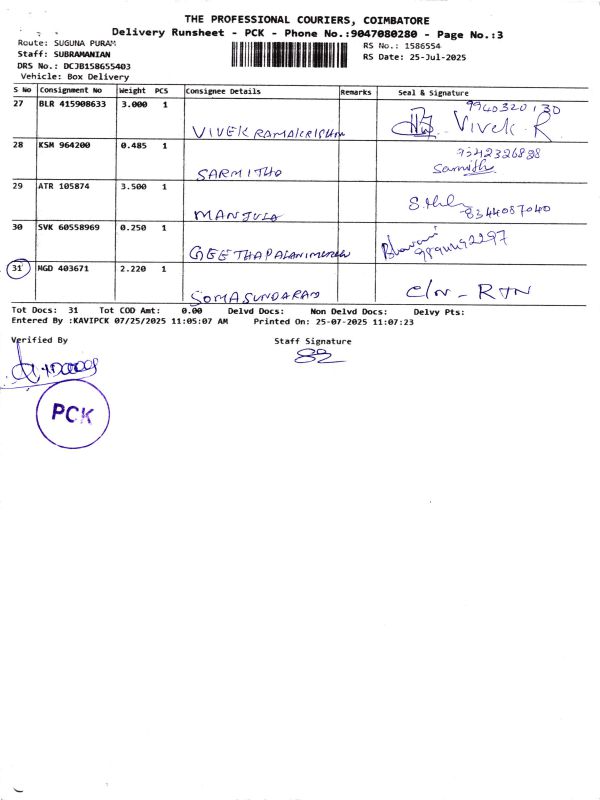 THE PROFESSIONAL COURIERS, COIMBATORE
Delivery Runsheet - PCK - Phone No.:9047080280 - Page No.:3
Route: SUGUNA PURAM
RS No.: 1586554
Staff: SUBRAMANIAN
RS Date: 25-Jul-2025
DRS No.: DCJB158655403
Vehicle: Box Delivery
S No Consignment No Weight PCS Consignee Details Remarks Seal & Signature
27 BLR 415908633 3.000 1 9940320130
VIVEK RAMAKRISHNA Vivek R
28 KSM 964200 0.485 1 9342326828
SARMITHO Sarmitho
29 ATR 105874 3.500 1
MANJULA 8344087040
30 SVK 60558969 0.250 1 Bhavani
31 MGD 403671 2.220 1
SOMASUNDARAM C/N - RTN
Tot Docs: 31 Tot COD Amt: 0.00 Delvd Docs: Non Delvd Docs: Delvy Pts:
Entered By :KAVIPCK 07/25/2025 11:05:07 AM Printed On: 25-07-2025 11:07:23
Verified By Staff Signature
PCK